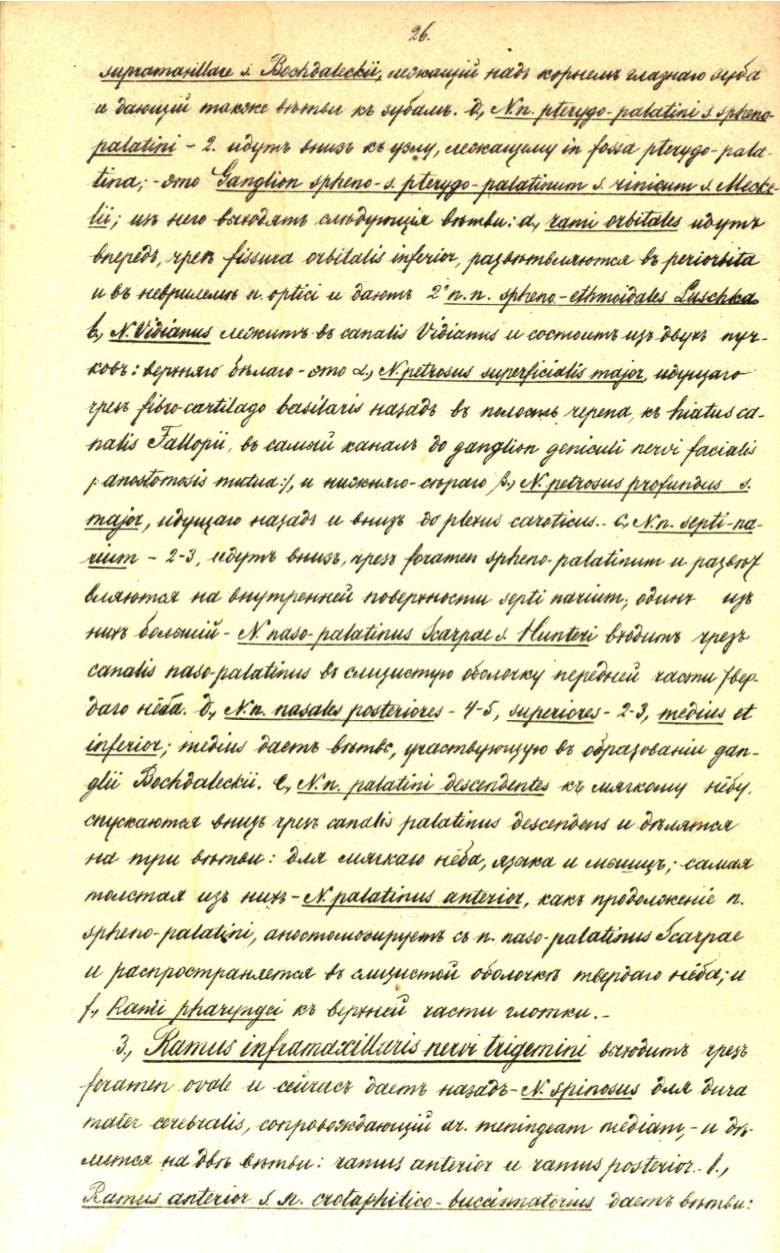 26.
supramaxillare s. Bochdaleckii, лежащій надъ корнемъ глазнаго зуба
и дающій также вѣтви къ зубамъ. d, N.n. pterygo-palatini s spheno-
palatini - 2. идутъ внизъ къ узлу, лежащему in fossa pterygo-pala-
tina; - это Ganglion spheno- s. pterygo-palatinum s. rinicum s. Mecke-
lii; изъ него выходятъ слѣдующія вѣтви: a, rami orbitales идутъ
впередъ, чрезъ fissura orbitalis inferior, развѣтвляются въ periorbita
и въ невриллемѣ n. optici и даютъ 2 n.n. spheno-ethmoidales Luschka
b, N. Vidianus лежитъ въ canalis Vidianus и состоитъ изъ двухъ пуч-
ковъ: верхняго бѣлаго - это α, N. petrosus superficialis major, идущаго
чрезъ fibro-cartilago basilaris назадъ въ полость черепа, къ hiatus ca-
nalis Fallopii, въ самый каналъ до ganglion geniculi nervi facialis
/: anostomosis mutua :/, и нижняго-сѣраго β, N. petrosus profundus s.
major, идущаго назадъ и внизъ до plexus caroticus. - c, N.n. septi-na-
rium - 2-3, идутъ внизъ, чрезъ foramen spheno-palatinum и развѣт
вляются на внутренней поверхности septi narium; одинъ изъ
нихъ большій - N. naso-palatinus Scarpae s. Hunteri входитъ чрезъ
canalis naso-palatinus въ слизистую оболочку передней части твер-
даго нёба. d, N.n. nasales posteriores - 4-5, superiores - 2-3, medius et
inferior; medius даетъ вѣтвь, участвующую въ образованіи gan-
glii Bochdaleckii. e, N.n. palatini descendentes къ мягкому нёбу,
спускаются внизъ чрезъ canalis palatinus descendens и дѣлятся
на три вѣтви: для мягкаго нёба, язычка и мышцъ; самая
толстая изъ нихъ - N. palatinus anterior, какъ продолженіе n.
spheno-palatini, аностомозируетъ съ n. naso-palatinus Scarpae
и распространяется въ слизистой оболочкѣ твердаго нёба; и
f, Rami pharyngei къ верхней части глотки. -
3, Ramus inframaxillaris nervi trigemini выходитъ чрезъ
foramen ovale и сейчасъ даетъ назадъ - N. spinosus для dura
mater cerebralis, сопровождающій ar. meningeam mediam, - и дѣ-
лится на двѣ вѣтви: ramus anterior и ramus posterior. - 1.,
Ramus anterior s. n. crotaphitico-buccinatorius даетъ вѣтви: